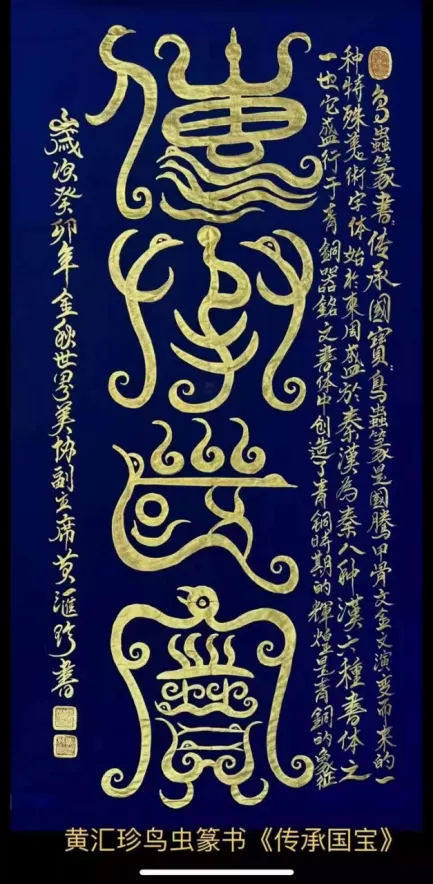 鳥蟲篆書：传承國寶：鳥蟲篆是图騰甲骨文金文演变而来的一
种特殊美術字体始於東周盛於秦漢為秦八种漢六種書体之
一也它盛行于青銅器銘文書体中创造了青銅時期的輝煌是青銅的象征
傳承國寶
歲次癸卯年金秋世界美协副主席黄滙珍書
黄汇珍鸟虫篆书《传承国宝》